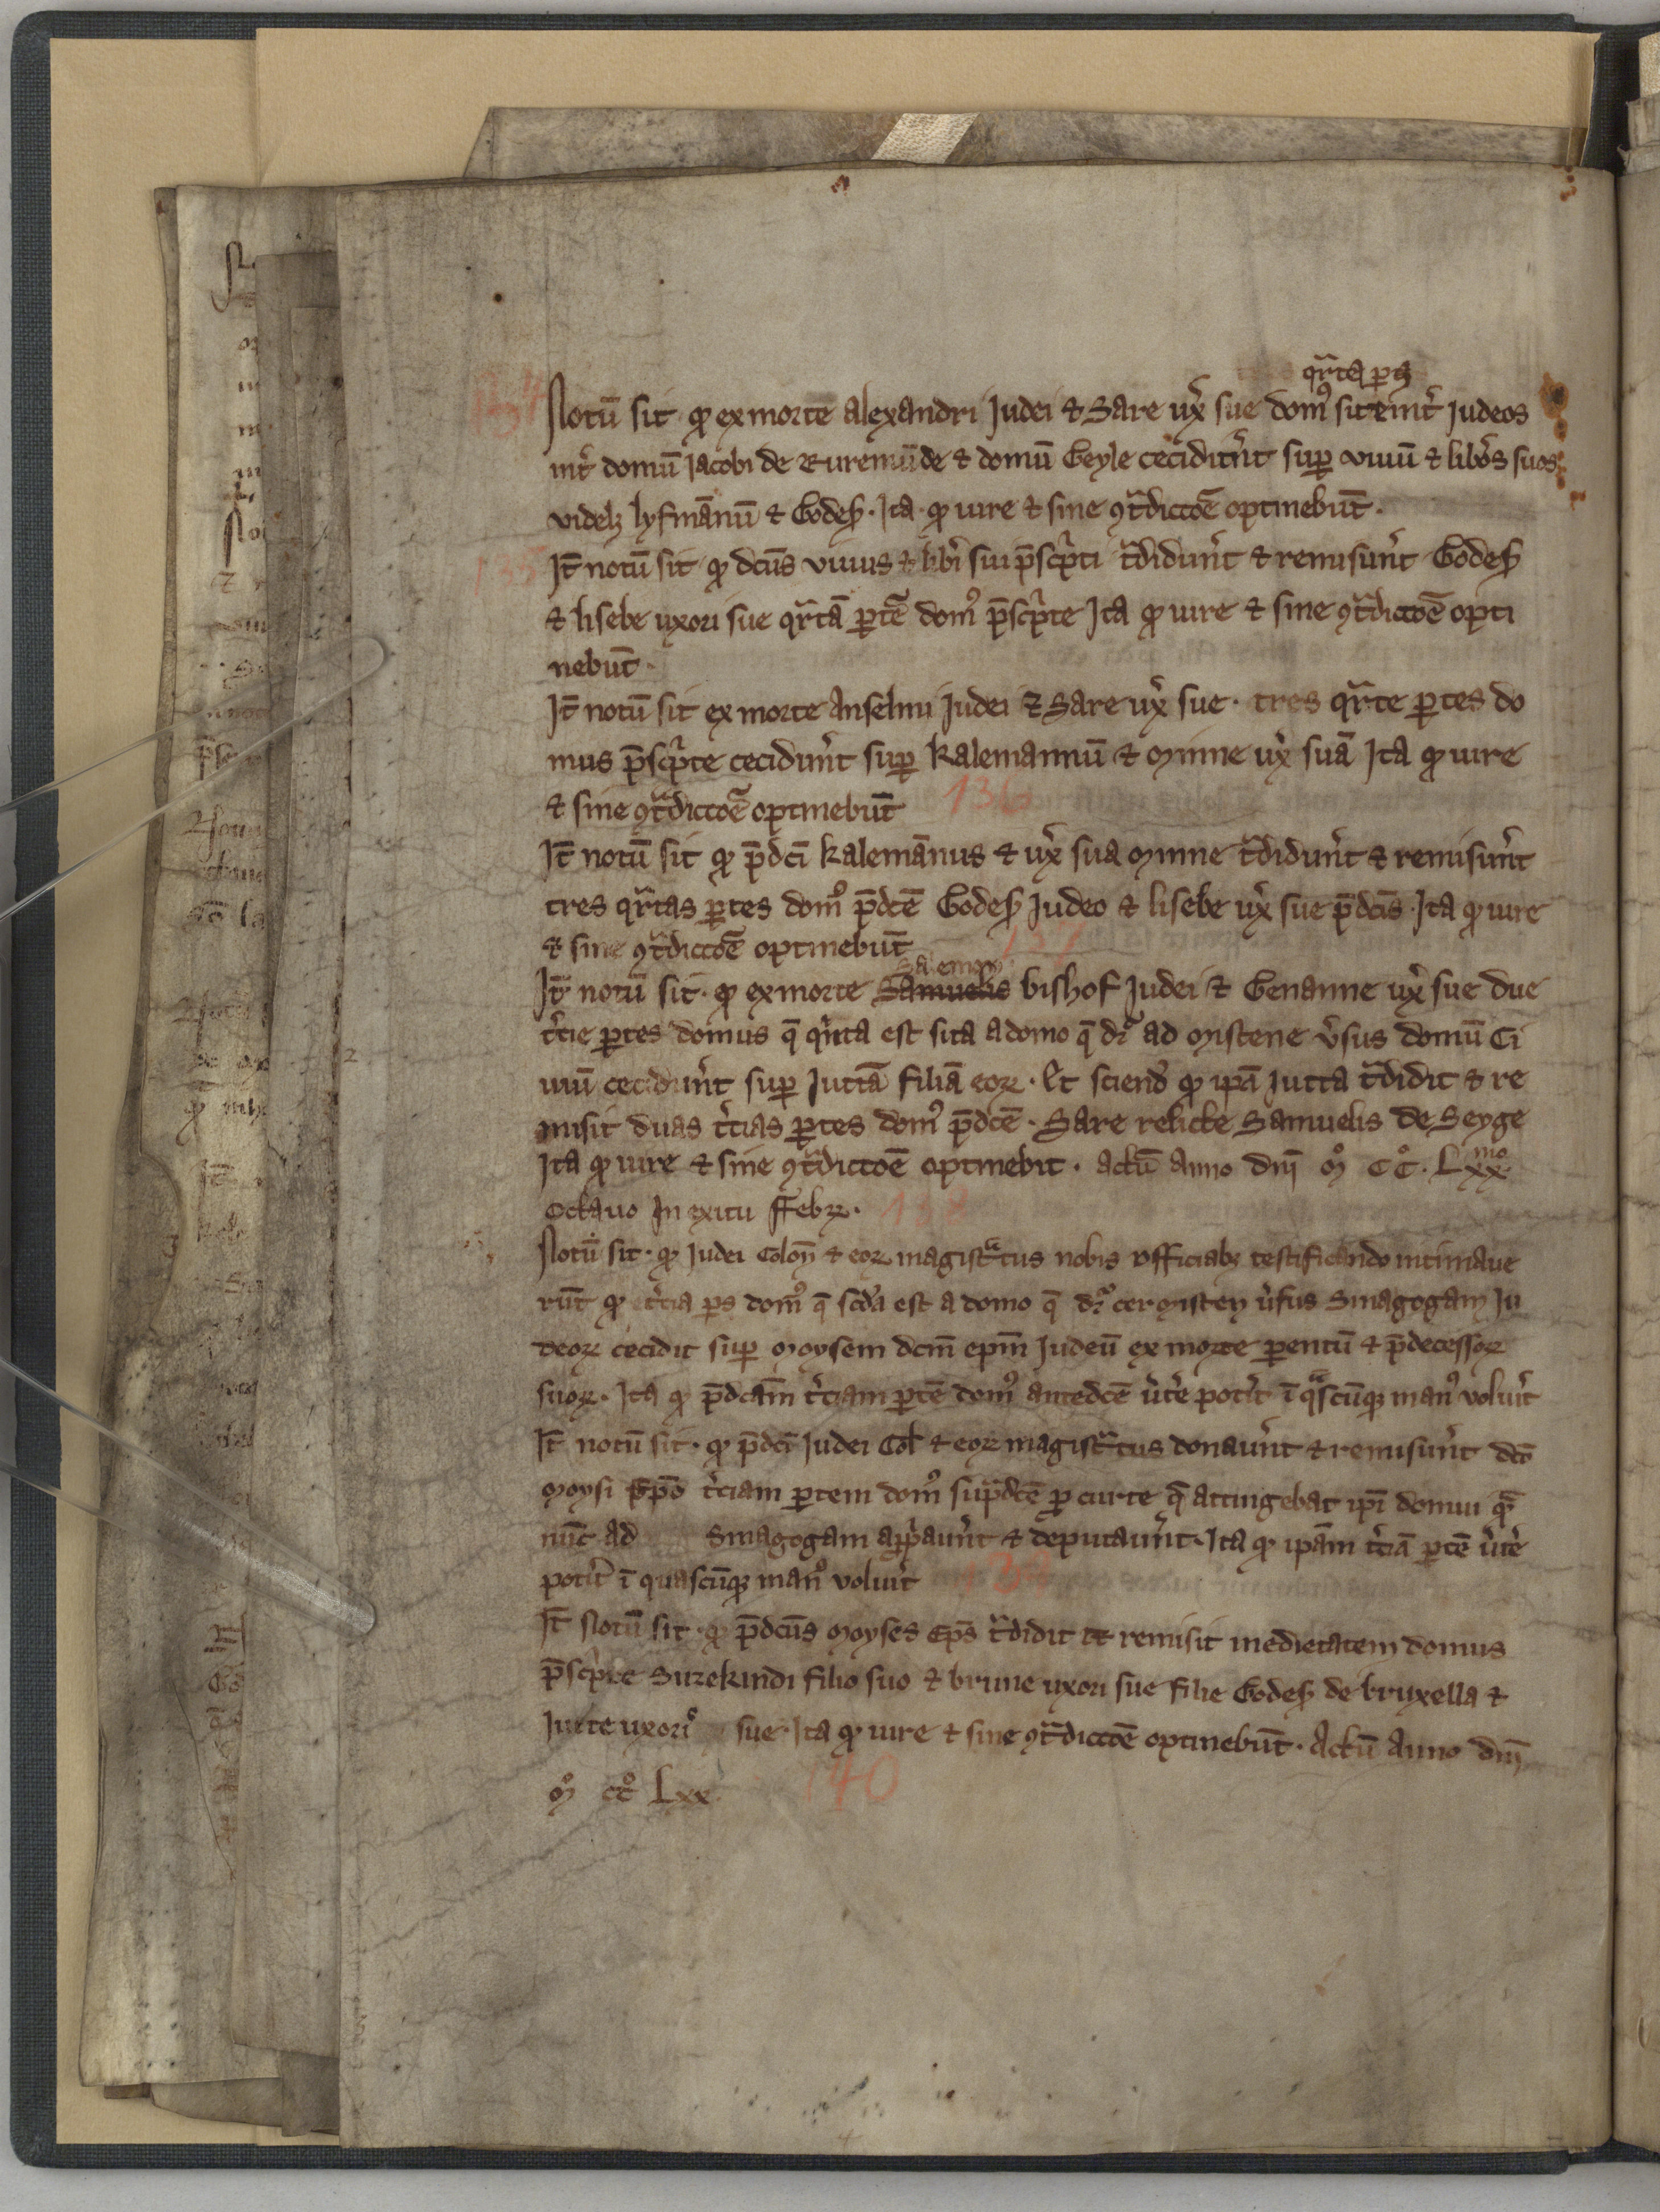 qᵃrta ps
134 Notū sit ꝙ ex morte alexandri Judei ⁊ Sare ux̓ sue domꝰ site int̓ Judeos
int̓ domū Jacobi de Ruremūde ⁊ domū Geyle cecidit̓nt suꝑ viuū ⁊ lib̓os suos
videlꝫ lyfmānū ⁊ Godesꝭ. Ita ꝙ iure ⁊ sine ꝯt̃dictōe optinebūt.
135 It̄ notū sit ꝙ dc̄us viuus ⁊ lib̓i sui p̄sc̓pti t̃didun̓t ⁊ remisun̓t Godesꝭ
⁊ lisebe uxori sue qᵃrtā ꝑtē domꝰ p̄sc̓pte Ita ꝙ iure ⁊ sine ꝯt̃dictōe opti
nebūt.
It̄ notū sit ex morte Anselmi Judei ⁊ Sare ux̓ sue. tres qᵃrte ꝑtes do
mus p̄sc̓pte cecidun̓t suꝑ kalemannū ⁊ Minne ux̓ suā Ita ꝙ iure
⁊ sine ꝯt̃dictōe optinebūt 136
It̄ notū sit ꝙ p̄dc̄i kalemānus ⁊ ux̓ sua Minne t̃didun̓t ⁊ remisun̓t
tres qᵃrtas ꝑtes domꝰ p̄dc̄e Godesꝭ Judeo ⁊ lisebe ux̓ sue p̄dc̄is. Ita ꝙ iure
⁊ sine ꝯt̃dictōe optinebūt 137
Salemon
It̄ notū sit. ꝙ ex morte Samuelis bishof Judei ⁊ Genanne ux̓ sue due
t̓cie ꝑtes domus q̄ qⁱnta est sita a domo q̄ dr̄ ad Mistene v̓sus domū Ci
uiū cecidun̓t suꝑ Juttā filiā eoꝝ. Et sciend̓ ꝙ ip̄a Jutta t̃didit ⁊ re
misit duas t̓cias ꝑtes domꝰ p̄dc̄e. Sare relicte Samuelis de Seyge
Ita ꝙ iure ⁊ sine ꝯt̃dictōe optinebit. Actū Anno dn̄i M° CC°. Lxxᵐᵒ
octauo In exitu ffebꝝ. 138
Notū sit. ꝙ Judei Colon̄ ⁊ eoꝝ magistᵃtus nobis officialꝫ testificando intimaue
rūt ꝙ t̓cia ps domꝰ q̄ scd̓a est a domo q̄ dr̄ cer Misten v̓sus Sinagogam Ju
deoꝝ cecidit suꝑ Moysem dcm̄ epm̄ Judeū ex morte ꝑentū ⁊ p̄decessoꝝ
suoꝝ. Ita ꝙ p̄dcām t̓ciam ꝑtē domꝰ antedc̄e v̓t̓e pot̓it ī qᵃscūqꝫ manꝰ voluit̓
It̄ notū sit. ꝙ p̄dc̄i Judei Col̄ ⁊ eoꝝ magistᵃtus donaun̓t ⁊ remisun̓t dc̄o
Moysi Ep̄o t̓ciam ꝑtem domꝰ sup̃dc̄e ꝓ curte q̄ attingebat ip̄i domui qᵃ
nūc ad Sinagogam aꝓp̓aun̓t ⁊ deputaun̓t. Ita ꝙ ip̄am t̓ciā ꝑtē v̓t̓e
pot̓it ī quascūqꝫ manꝰ voluit̓ 139
It̄ Notū sit. ꝙ p̄dc̄us Moyses Ep̄s t̃didit et remisit medietatem domus
p̄sc̓pte Surekindi filio suo ⁊ brune uxori sue filie Godesꝭ de bruxella ⁊
Jutte uxori sue. Ita ꝙ iure ⁊ sine ꝯt̃dictōe optinebūt. Actū Anno dn̄i
M° cc° Lxx 140